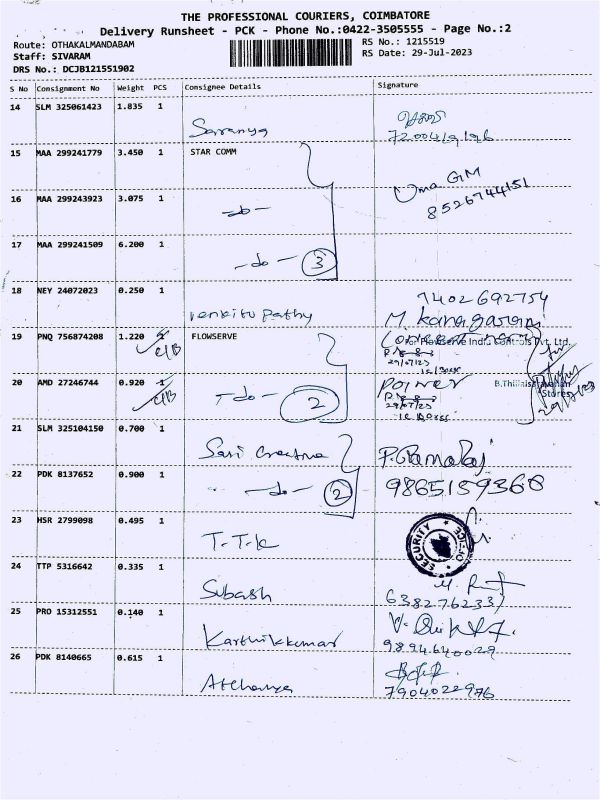 THE PROFESSIONAL COURIERS, COIMBATORE
Delivery Runsheet - PCK - Phone No.:0422-3505555 - Page No.:2
Route: OTHAKALMANDABAM
RS No.: 1215519
Staff: SIVARAM
RS Date: 29-Jul-2023
DRS No.: DCJB121551902
S No Consignment No Weight PCS Consignee Details Signature
14 SLM 325061423 1.835 1
Saranya
15 MAA 299241779 3.450 1 STAR COMM
Uma GM
8526744151
16 MAA 299243923 3.075 1
-do-
17 MAA 299241509 6.200 1
-do- 3
18 NEY 24072023 0.250 1
7402692754
Venkitu pathy
M. Kanagaram
19 PNQ 756874208 1.220 1 FLOWSERVE
C/B
For Flowserve India Controls Pvt. Ltd.
29/07/23
20 AMD 27246744 0.920 1
C/B
-do- 2
Stores
29/07/23
21 SLM 325104150 0.700 1
Sari Creation
22 PDK 8137652 0.900 1
-do- 2
9865159368
23 HSR 2799098 0.495 1
T-T-K
SECURITY OFFICE
24 TTP 5316642 0.335 1
Subash
6382762337
25 PRO 15312551 0.140 1
Karthikkumar
9894640029
26 PDK 8140665 0.615 1
Atchaya
7904022976